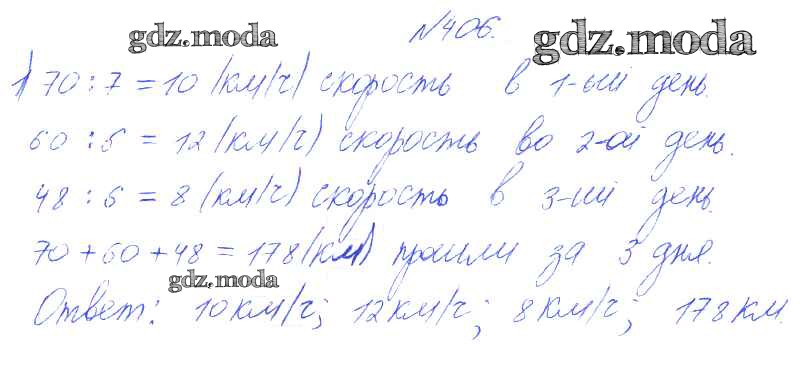 №406.
gdz.moda
gdz.moda
1) 70 : 7 = 10 (км/ч) скорость в 1-ый день.
60 : 5 = 12 (км/ч) скорость во 2-ой день.
48 : 6 = 8 (км/ч) скорость в 3-ий день.
70 + 60 + 48 = 178 (км) прошли за 3 дня.
gdz.moda
Ответ: 10 км/ч; 12 км/ч; 8 км/ч; 178 км.